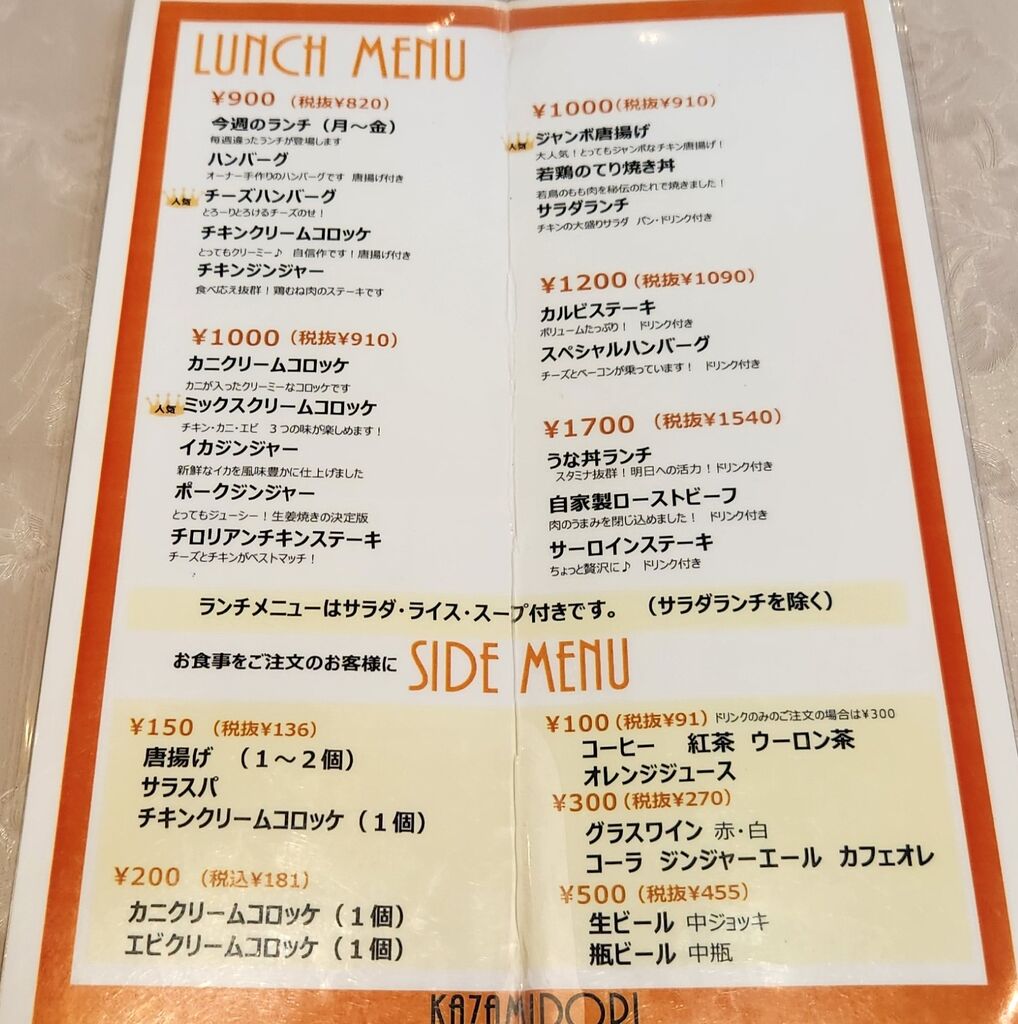 LUNCH MENU
¥900 (税抜¥820)
今週のランチ（月～金）
毎週違ったランチが登場します
ハンバーグ
オーナー手作りのハンバーグです 唐揚げ付き
人気 チーズハンバーグ
とろーりとろけるチーズのせ！
チキンクリームコロッケ
とってもクリーミー♪ 自信作です！唐揚げ付き
チキンジンジャー
食べ応え抜群！鶏むね肉のステーキです
¥1000 (税抜¥910)
カニクリームコロッケ
カニが入ったクリーミーなコロッケです
人気 ミックスクリームコロッケ
チキン・カニ・エビ ３つの味が楽しめます！
イカジンジャー
新鮮なイカを風味豊かに仕上げました
ポークジンジャー
とってもジューシー！生姜焼きの決定版
チロリアンチキンステーキ
チーズとチキンがベストマッチ！
¥1000(税抜¥910)
人気 ジャンボ唐揚げ
大人気！とってもジャンボなチキン唐揚げ！
若鶏のてり焼き丼
若鳥のもも肉を秘伝のたれで焼きました！
サラダランチ
チキンの大盛りサラダ パン・ドリンク付き
¥1200(税抜¥1090)
カルビステーキ
ボリュームたっぷり！ ドリンク付き
スペシャルハンバーグ
チーズとベーコンが乗っています！ ドリンク付き
¥1700 (税抜¥1540)
うな丼ランチ
スタミナ抜群！明日への活力！ドリンク付き
自家製ローストビーフ
肉のうまみを閉じ込めました！ ドリンク付き
サーロインステーキ
ちょっと贅沢に♪ ドリンク付き
ランチメニューはサラダ・ライス・スープ付きです。 （サラダランチを除く）
お食事をご注文のお客様に SIDE MENU
¥150 (税抜¥136)
唐揚げ （１～２個）
サラスパ
チキンクリームコロッケ（１個）
¥200 (税込¥181)
カニクリームコロッケ（１個）
エビクリームコロッケ（１個）
¥100(税抜¥91) ドリンクのみのご注文の場合は¥300
コーヒー 紅茶 ウーロン茶
オレンジジュース
¥300(税抜¥270)
グラスワイン 赤・白
コーラ ジンジャーエール カフェオレ
¥500(税抜¥455)
生ビール 中ジョッキ
瓶ビール 中瓶
KAZAMIDORI